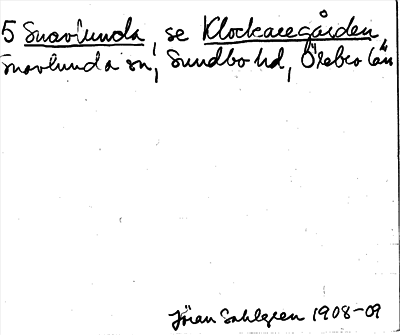 5 Snavlunda, se Klockaregården,
Snavlunda sn, Sundbo hd, Örebro län
Jöran Sahlgren 1908-09